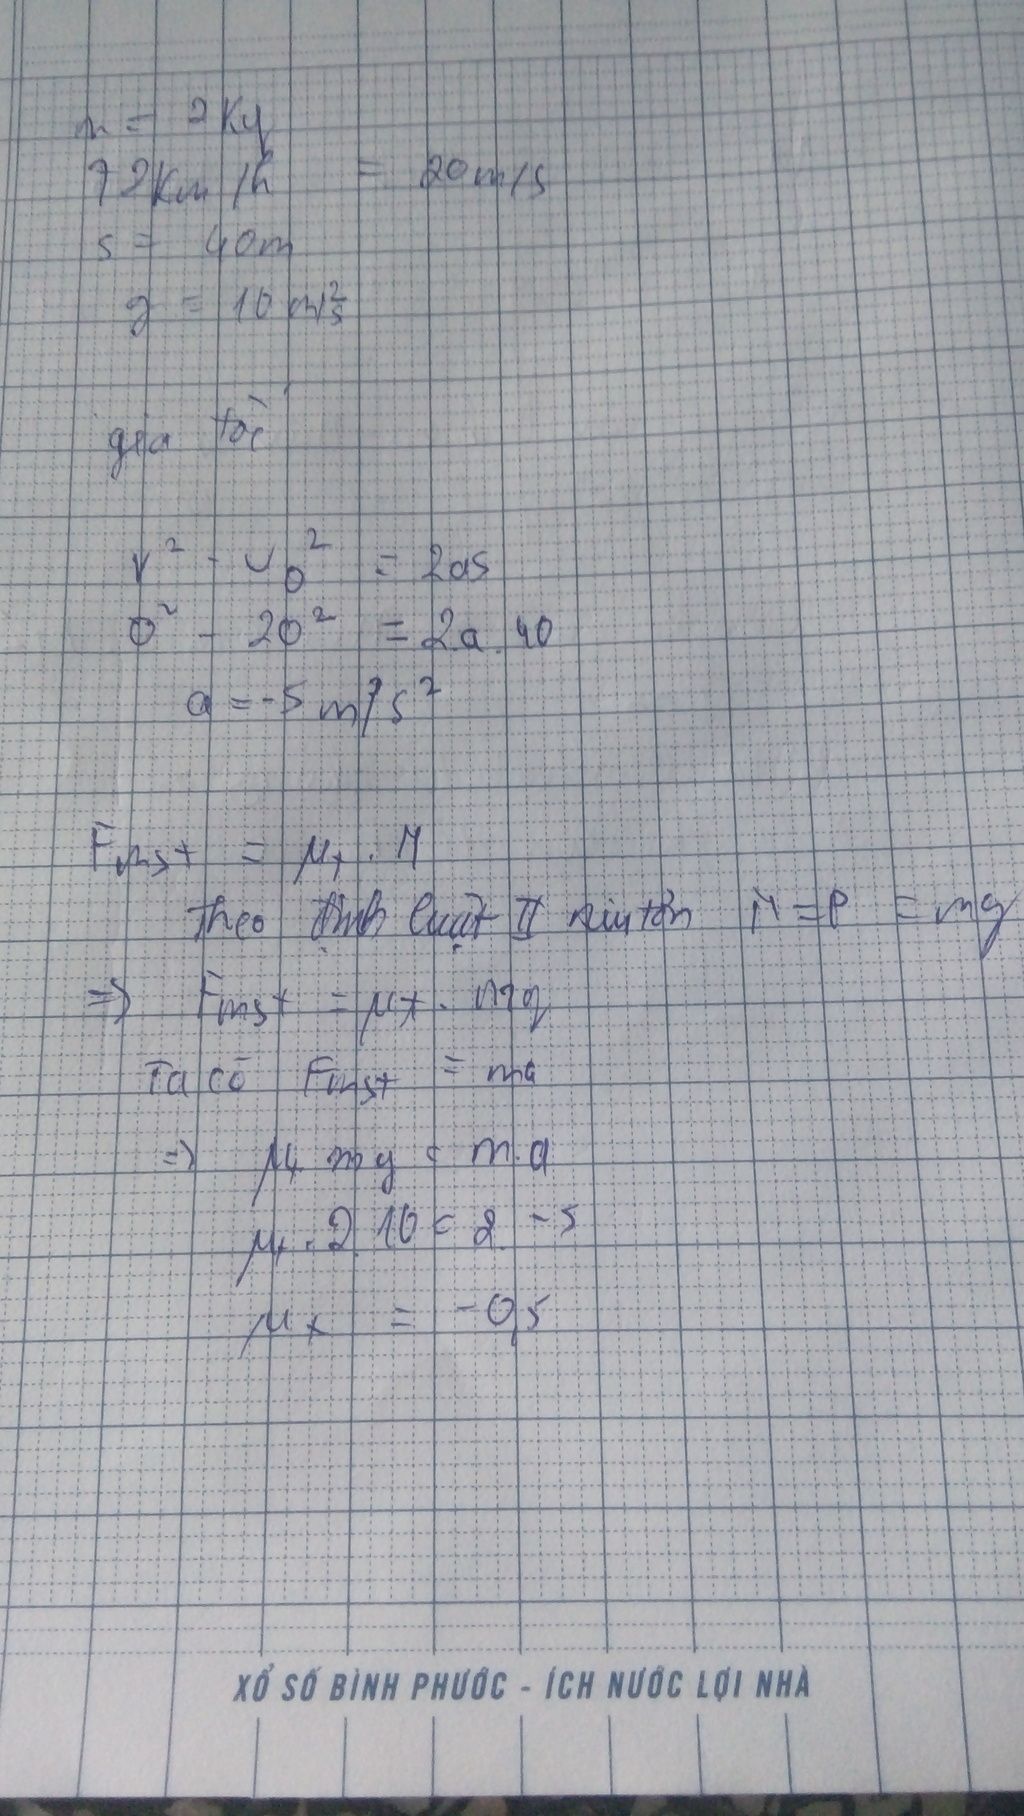 m = 2Kg
72Km/h = 20m/s
s = 40m
g = 10 m/s²
gia tốc
v² - v₀² = 2as
0² - 20² = 2a.40
a = -5 m/s²
Fmst = μt . N
Theo định luật II niu tơn N = P = mg
=> Fmst = μt . mg
Ta có Fmst = ma
=> μt mg = m.a
μt . 2.10 = 2. -5
μt = -0,5
XỔ SỐ BÌNH PHƯỚC - ÍCH NƯỚC LỢI NHÀ